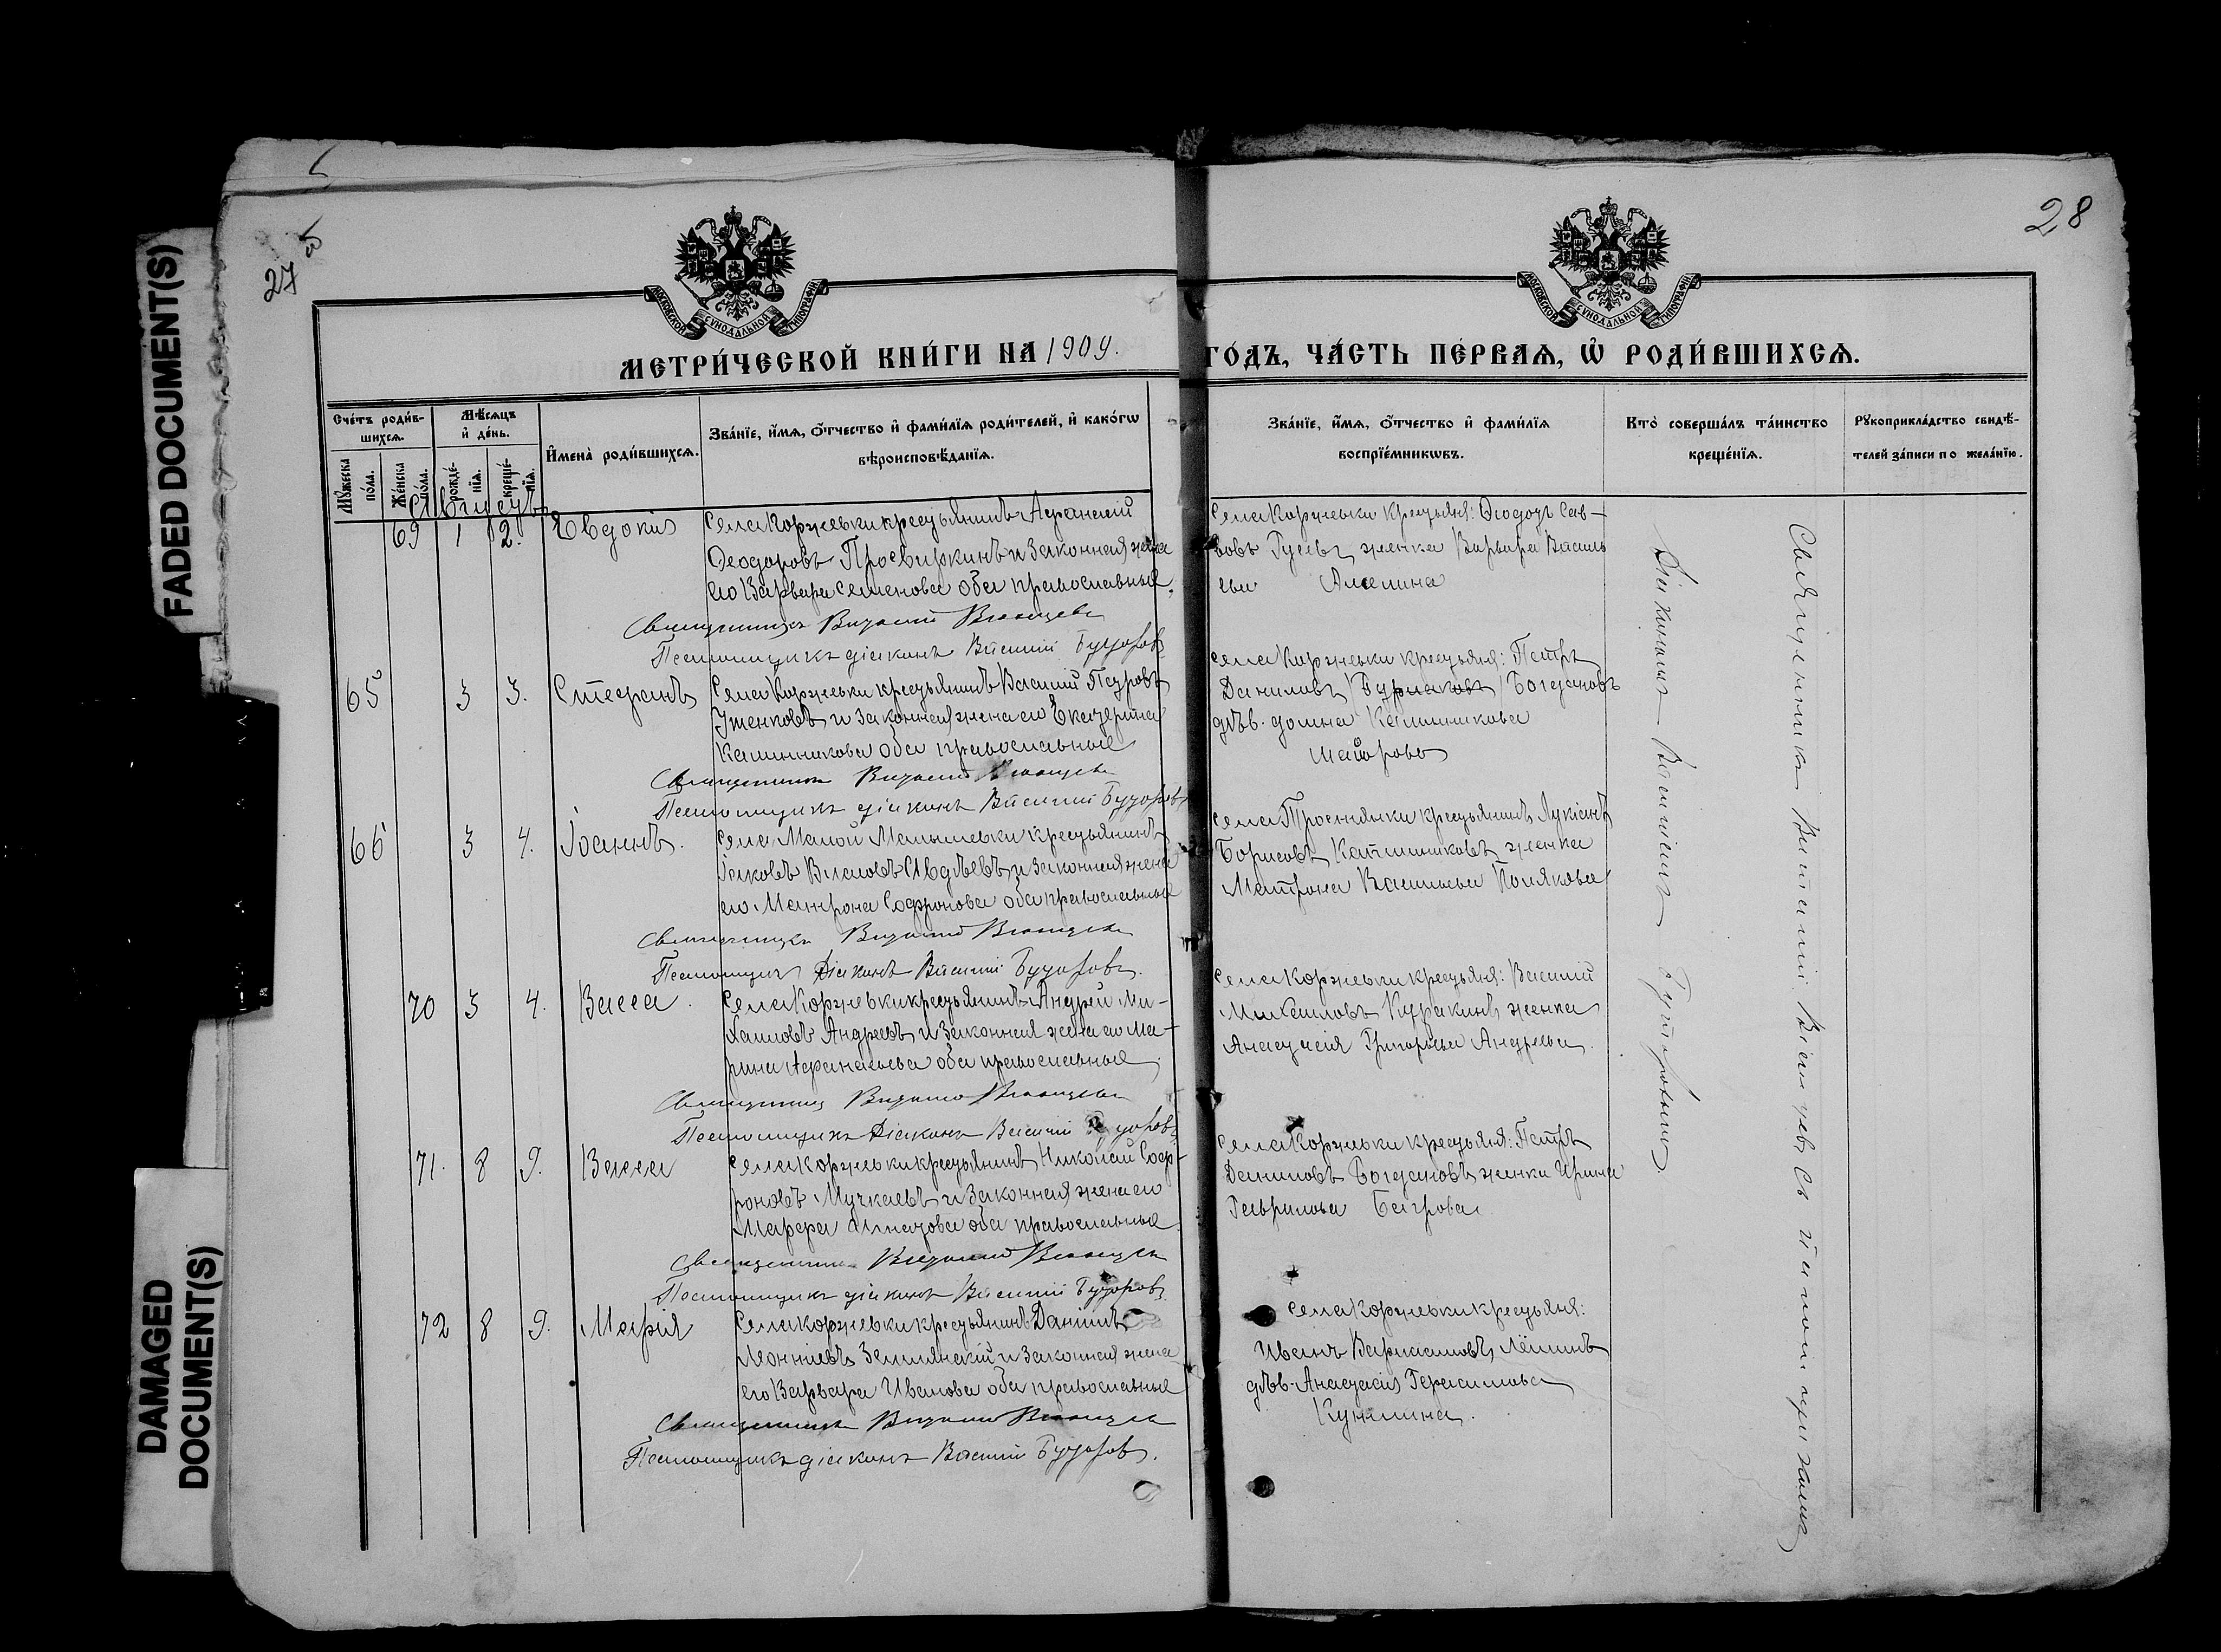 FADED DOCUMENT(S)
DAMAGED
DOCUMENT(S)
27 об
28
МОСКОВСКОЙ СѴНОДАЛЬНОЙ ТИПОГРАФІИ
МОСКОВСКОЙ СѴНОДАЛЬНОЙ ТИПОГРАФІИ
МЕТРИ́ЧЕСКОЙ КНИ́ГИ НА 1909.
ГО́ДЪ, ЧА́СТЬ ПЕ́РВАѦ, Ѡ҆ РОДИ́ВШИХСѦ.
Сче́тъ роди́в-
шихсѧ.
Мꙋ́жеска
по́ла.
Же́нска
по́ла.
Мѣ́сѧцъ
и҆ де́нь.
рожде́-
нїѧ.
креще́-
нїѧ.
И҆мена̀ роди́вшихсѧ.
Зва́нїе, и҆́мѧ, ѻ҆́тчество и҆ фами́лїѧ роди́телей, и҆ како́гѡ
вѣроисповѣ́данїѧ.
Зва́нїе, и҆́мѧ, ѻ҆́тчество и҆ фами́лїѧ
воспрїе́мникѡвъ.
Кто̀ соверша́лъ та́инство
креще́нїѧ.
Рꙋкоприкла́дство свидѣ́-
телей за́писи по жела́нїю.
Августъ
69 1 2. Евдокія
Села Коржевки крестьянинъ Афанасій
Ѳеодоровъ Просвиркинъ и законная жена
его Варвара Семенова оба православные.
Священникъ Виталій Віанцевъ
Псаломщикъ діаконъ Василій Бугоровъ
Села Коржевки крестьяне: Ѳеодотъ Сав-
вовъ Гусевъ, женка Варвара Василь
ева Алелина
65 3 3. Стефанъ
Села Коржевки крестьянинъ Василій Петровъ
Утенковъ и законная жена его Екатерина
Калинникова оба православные
Священникъ Виталій Віанцевъ
Псаломщикъ діаконъ Василій Бугоровъ
Села Коржевки крестьяне: Петръ
Даниловъ /Бурлаковъ/ Богдановъ
дѣв. Домна Калинникова
Майорова
66 3 4. Іоаннъ.
Села Малой Малышевки крестьянинъ
Іаковъ Власовъ Авдѣевъ, и законная жена
его Матрона Софронова оба православные
Священникъ Виталій Віанцевъ
Псаломщикъ Діаконъ Василій Бугоровъ.
Села Тростянки крестьянинъ Лукіанъ
Борисовъ Калинниковъ, женка
Матрона Васильева Полякова
70 3 4. Васса.
Села Коржевки крестьянинъ Андрей Ми-
хаиловъ Андреевъ, и законная жена его Ма-
рина Афанасьева оба православные.
Священникъ Виталій Віанцевъ
Псаломщикъ Діаконъ Василій Бугоровъ
Села Коржевки крестьяне: Василій
Михаиловъ Куракинъ, женка
Анастасія Григорьева Андреева.
71. 8 9. Васса
Села Коржевки крестьянинъ Николай Соф-
роновъ Мучкаевъ и законная жена его
Марфа Игнатова оба православные
Священникъ Виталій Віанцевъ
Псаломщикъ діаконъ Василій Бугоровъ.
Села Коржевки крестьяне: Петръ
Даниловъ Богдановъ, женка Ирина
Гаврилова Багрова.
72 8 9. Марія
Села Коржевки крестьянинъ Даніилъ
Леонтіевъ Землянскій и законная жена
его Варвара Иванова оба православные
Священникъ Виталій Віанцевъ
Псаломщикъ діаконъ Василій Бугоровъ.
Села Коржевки крестьяне:
Иванъ Варлаамовъ, Лёлинъ
дѣв. Анастасія Герасимова
Кунлина.
Священникъ Виталій Віанцевъ съ
Діакономъ Василіемъ Бугоровымъ.